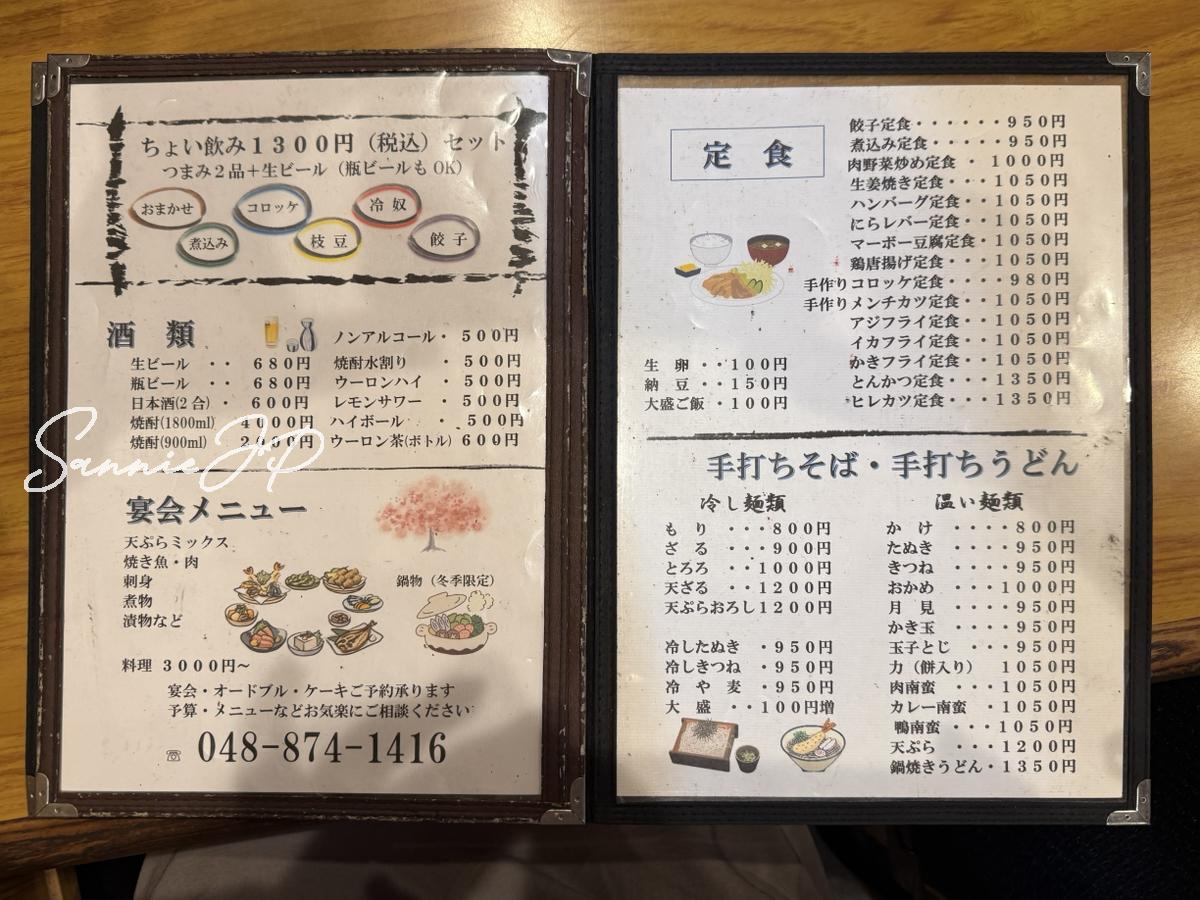 ちょい飲み1300円（税込）セット
つまみ2品＋生ビール（瓶ビールもOK）
おまかせ
コロッケ
冷奴
煮込み
枝豆
餃子
酒類
生ビール ・・ 680円
瓶ビール ・・ 680円
日本酒(2合) ・ 600円
焼酎(1800ml) 4000円
焼酎(900ml)
ノンアルコール・ 500円
焼酎水割り ・ 500円
ウーロンハイ ・ 500円
レモンサワー ・ 500円
ハイボール ・ 500円
ウーロン茶(ボトル) 600円
SannieJP
宴会メニュー
天ぷらミックス
焼き魚・肉
刺身
煮物
漬物など
鍋物（冬季限定）
料理 3000円〜
宴会・オードブル・ケーキご予約承ります
予算・メニューなどお気楽にご相談ください
☏ 048-874-1416
定食
餃子定食・・・・・・950円
煮込み定食・・・・・950円
肉野菜炒め定食 ・ 1000円
生姜焼き定食・・・1050円
ハンバーグ定食・・1050円
にらレバー定食・・1050円
マーボー豆腐定食・1050円
鶏唐揚げ定食・・・1050円
手作りコロッケ定食・・・980円
手作りメンチカツ定食・・1050円
アジフライ定食・・・1050円
イカフライ定食・・・1050円
かきフライ定食・・・1050円
とんかつ定食・・・1350円
ヒレカツ定食・・・1350円
生 卵 ・・100円
納 豆 ・・150円
大盛ご飯 ・100円
手打ちそば・手打ちうどん
冷し麺類
もり ・・・800円
ざる ・・・900円
とろろ ・・1000円
天ざる ・・1200円
天ぷらおろし1200円
冷したぬき ・950円
冷しきつね ・950円
冷や麦 ・950円
大盛 ・・100円増
温い麺類
かけ ・・・・800円
たぬき ・・・・950円
きつね ・・・・950円
おかめ ・・・1000円
月見 ・・・・950円
かき玉 ・・・・950円
玉子とじ ・・・950円
力（餅入り） 1050円
肉南蛮 ・・・1050円
カレー南蛮 ・1050円
鴨南蛮 ・・・1050円
天ぷら ・・・1200円
鍋焼きうどん・1350円